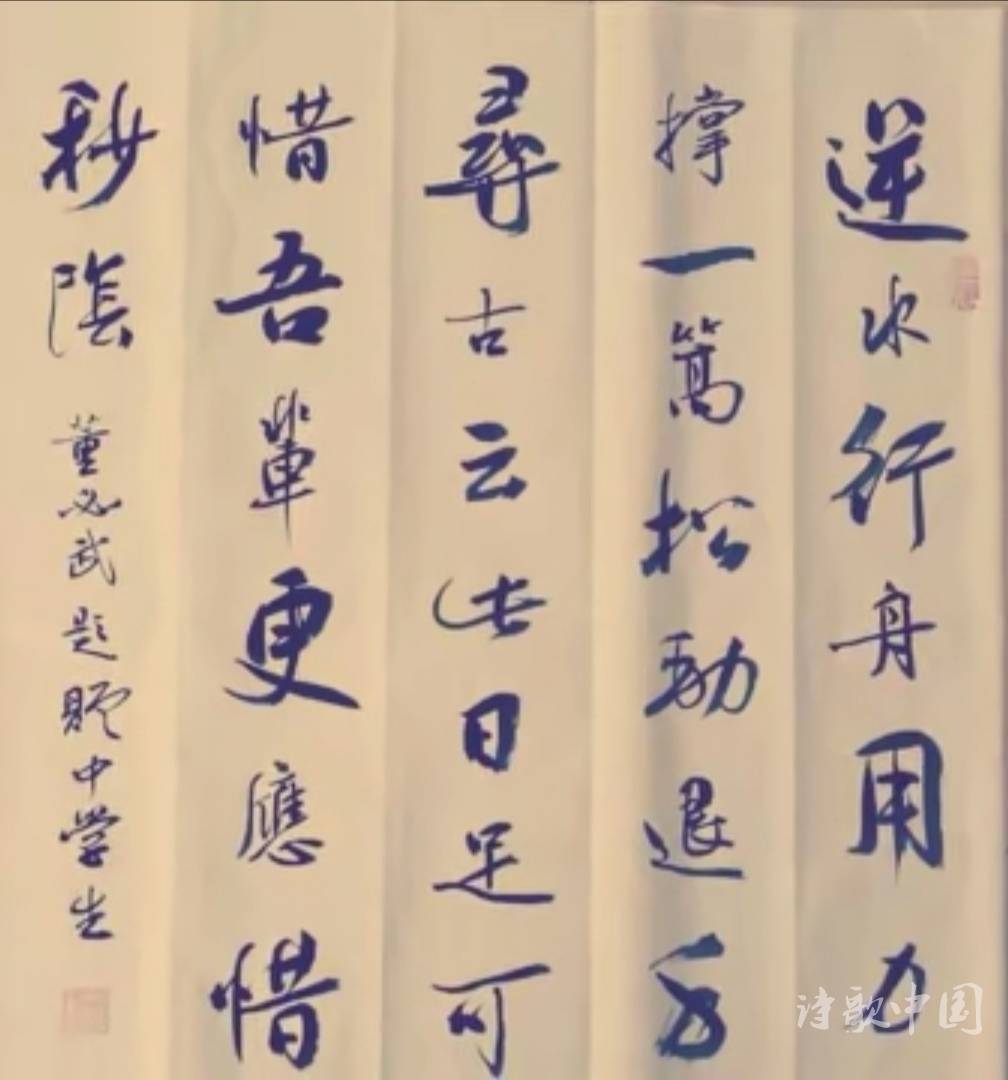 逆水行舟用力
撑一篙松勁退千
尋古云此日足可
惜吾輩更應惜
秒陰
董必武题贈中学生
诗歌中国